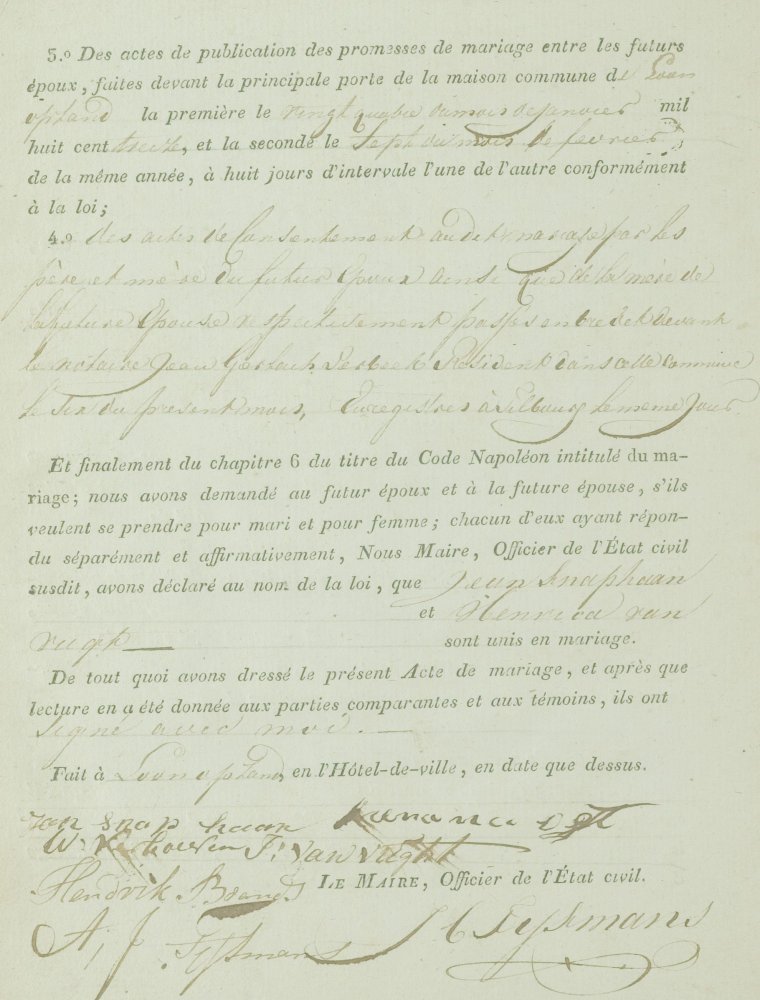 3.º Des actes de publication des promesses de mariage entre les futurs
époux, faites devant la principale porte de la maison commune de Loon
opZand la première le vingt quatre du mois de Janvier mil
huit cent treize, et la seconde le Sept du mois de fevrier,
de la même année, à huit jours d'intervale l'une de l'autre conformément
à la loi;
4.º des actes de Consentement au dit mariage par les
père et mère du futur Epoux ainsi que de la mère de
la future Epouse respectivement passés devant
le notaire Jean Gerlach Verbeek Résident dans cette Commune
le Six du present mois, Enregistrés à Tilbourg le meme Jour.
Et finalement du chapitre 6 du titre du Code Napoléon intitulé du ma-
riage; nous avons demandé au futur époux et à la future épouse, s'ils
veulent se prendre pour mari et pour femme; chacun d'eux ayant répon-
du séparément et affirmativement, Nous Maire, Officier de l'État civil
susdit, avons déclaré au nom de la loi, que Jean Snaphaan
et Henrica van
vught sont unis en mariage.
De tout quoi avons dressé le présent Acte de mariage, et après que
lecture en a été donnée aux parties comparantes et aux témoins, ils ont
signé avec moi.
Fait à Loon opZand, en l'Hôtel-de-ville, en date que dessus.
Jan Snaphaan
W. Verhoeven F. Van vught
Hendrik Brands LE MAIRE, Officier de l'État civil.
A, J Teijsmans H Teijsmans